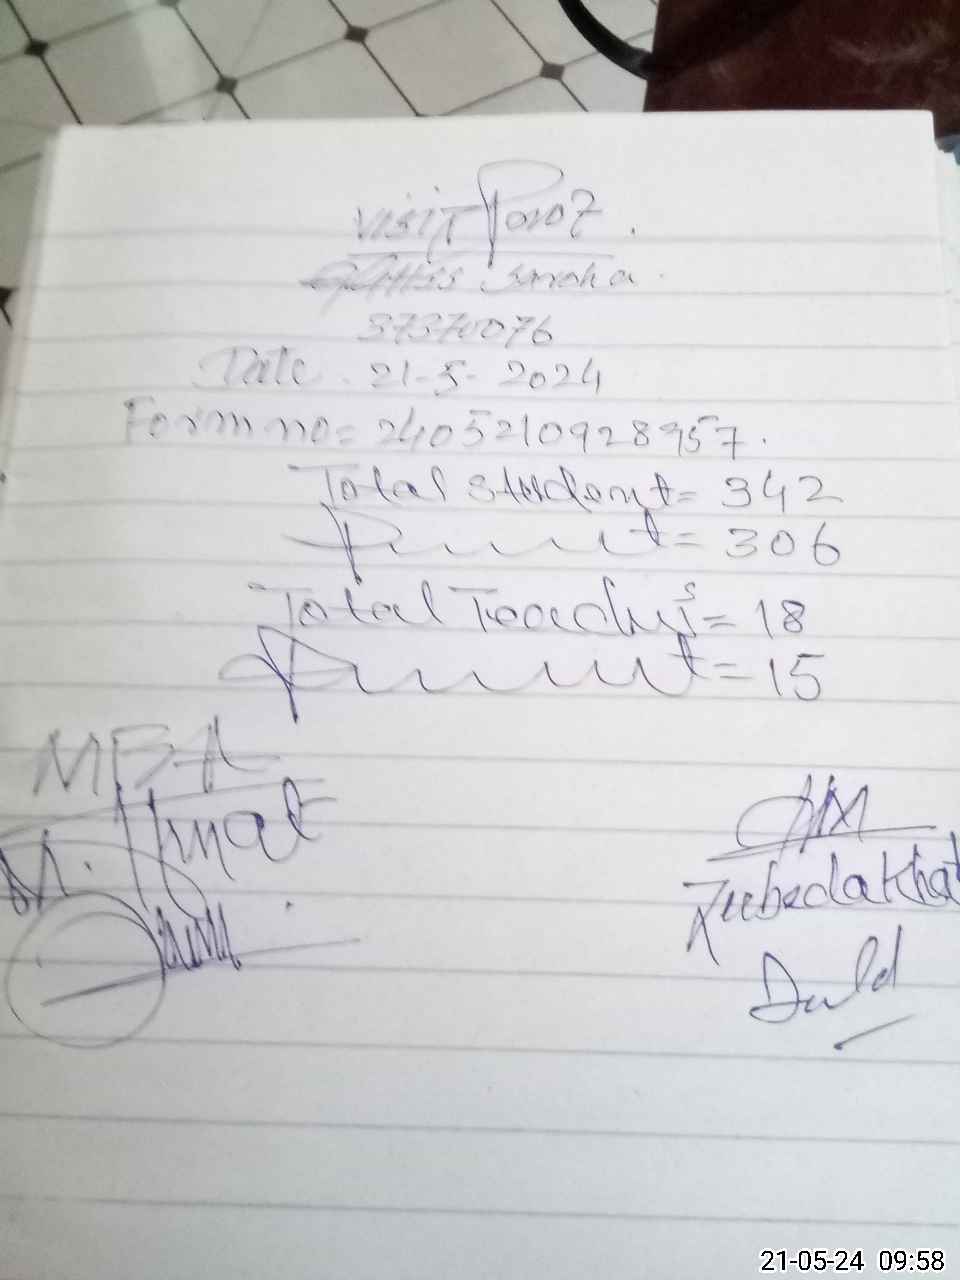 visit Proof.
GGHSS Saroha.
37370076
Date. 21-5-2024
Form no= 2405210928957.
Total student= 342
Present= 306
Total Teachers= 18
Present= 15
MEA
HM
Zubeda Khat
21-05-24 09:58